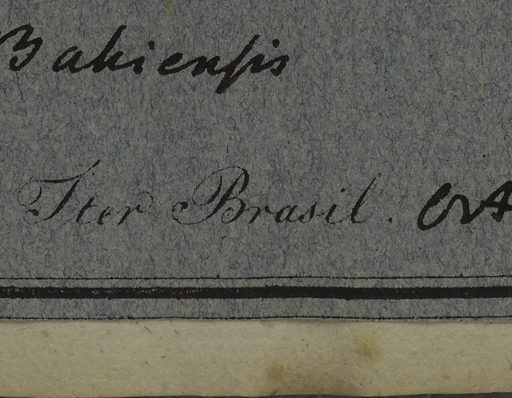 Bahienſis
Iter Brasil.